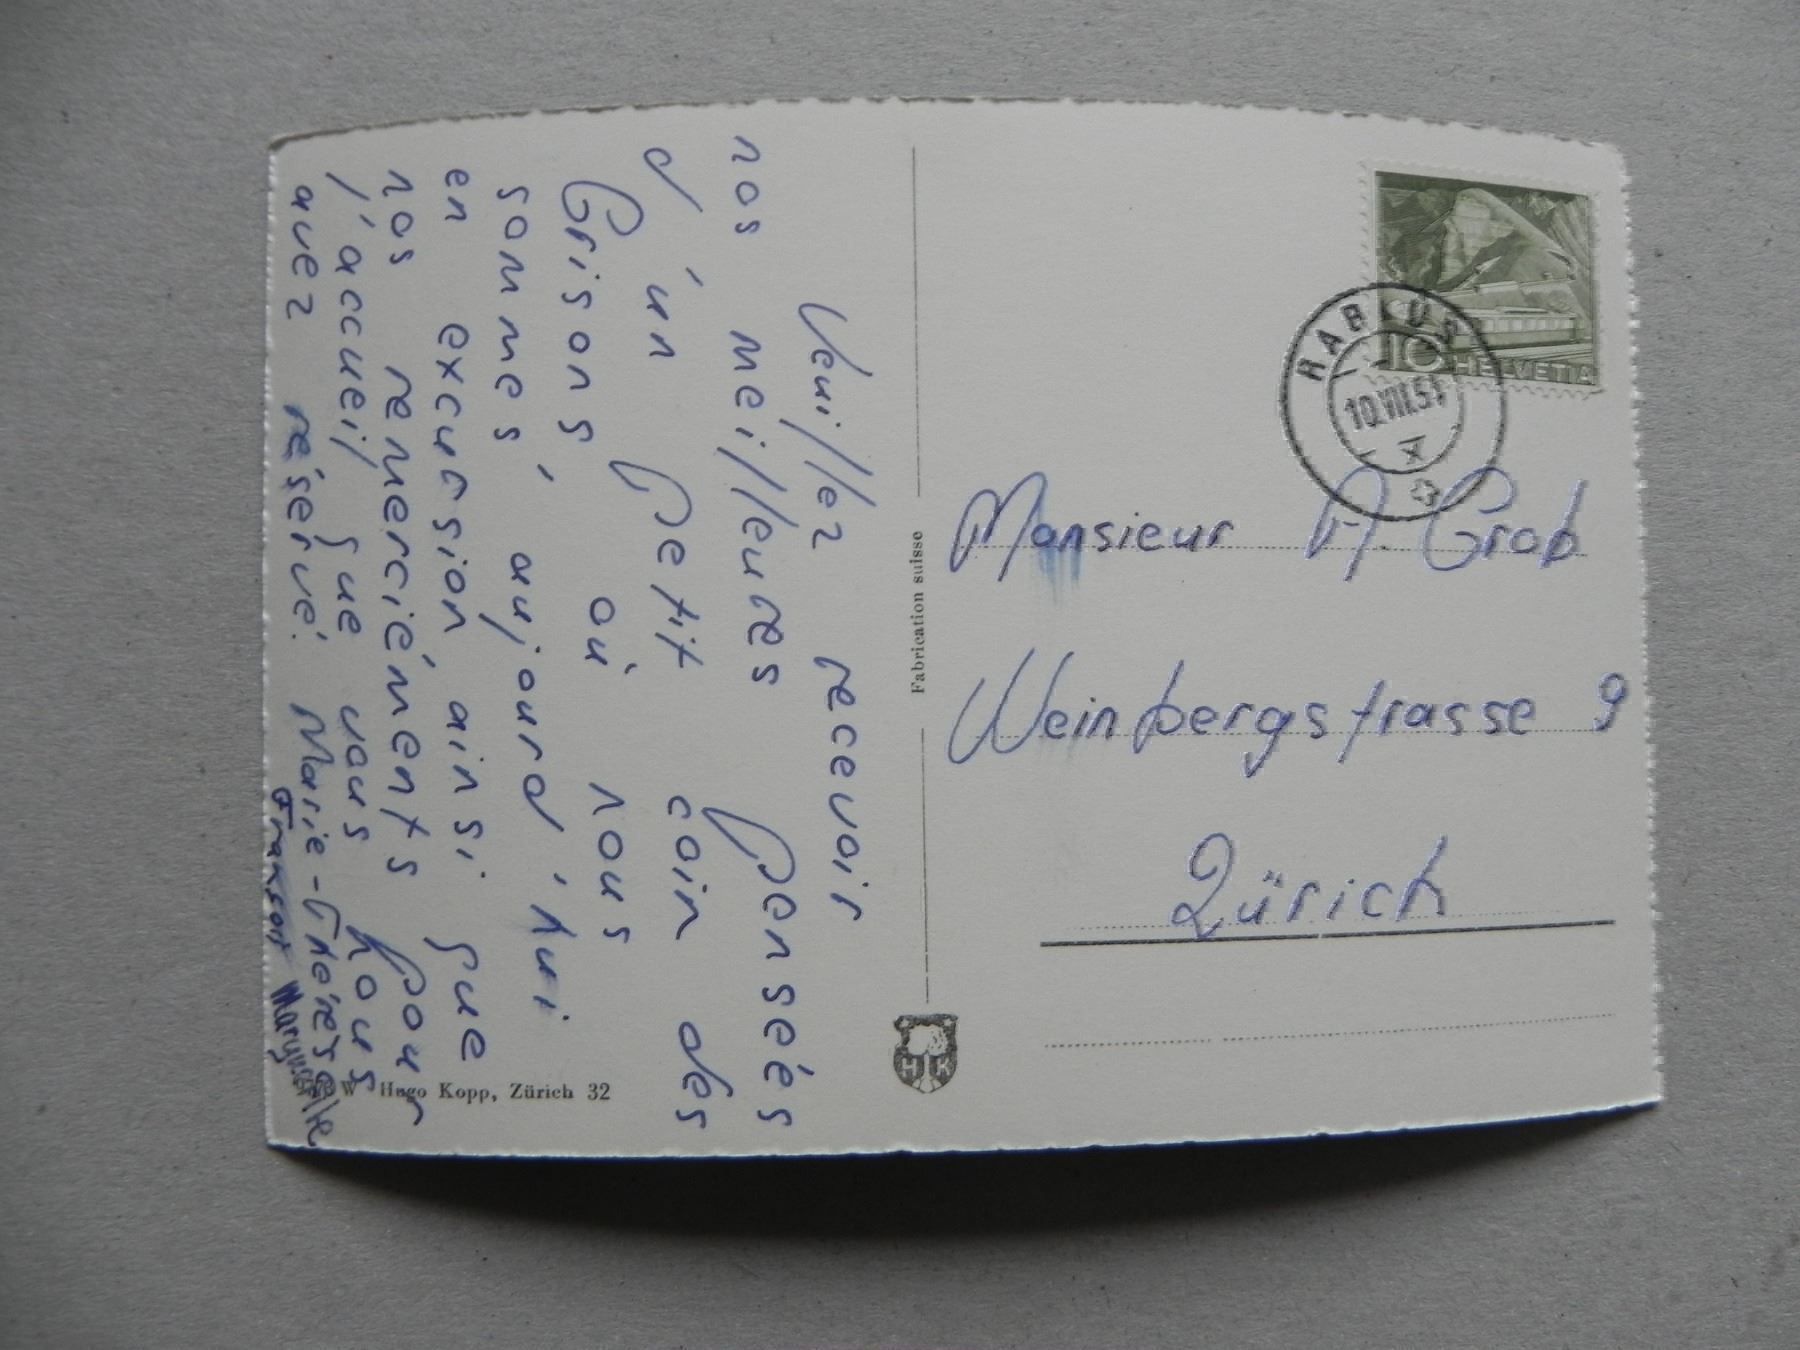 Veuillez recevoir
nos meilleures pensées
d'un petit coin des
Grisons où nous
sommes, aujourd'hui
en excursion, ainsi que
nos remerciéments pour
l'accueil que vous nous
avez réservé. Marie-Thérèse
Maryvelle
W Hugo Kopp, Zürich 32
Fabrication suisse
H K
10 HELVETIA
RABIUS
10.VIII.51
X
Monsieur A. Grob
Weinbergstrasse 9
Zürich